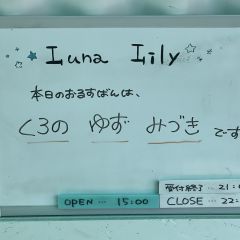 Luna Lily
本日のおるすばんは、
くろの ゆず みづき です
受付終了… 21:
OPEN … 15:00
CLOSE … 22: